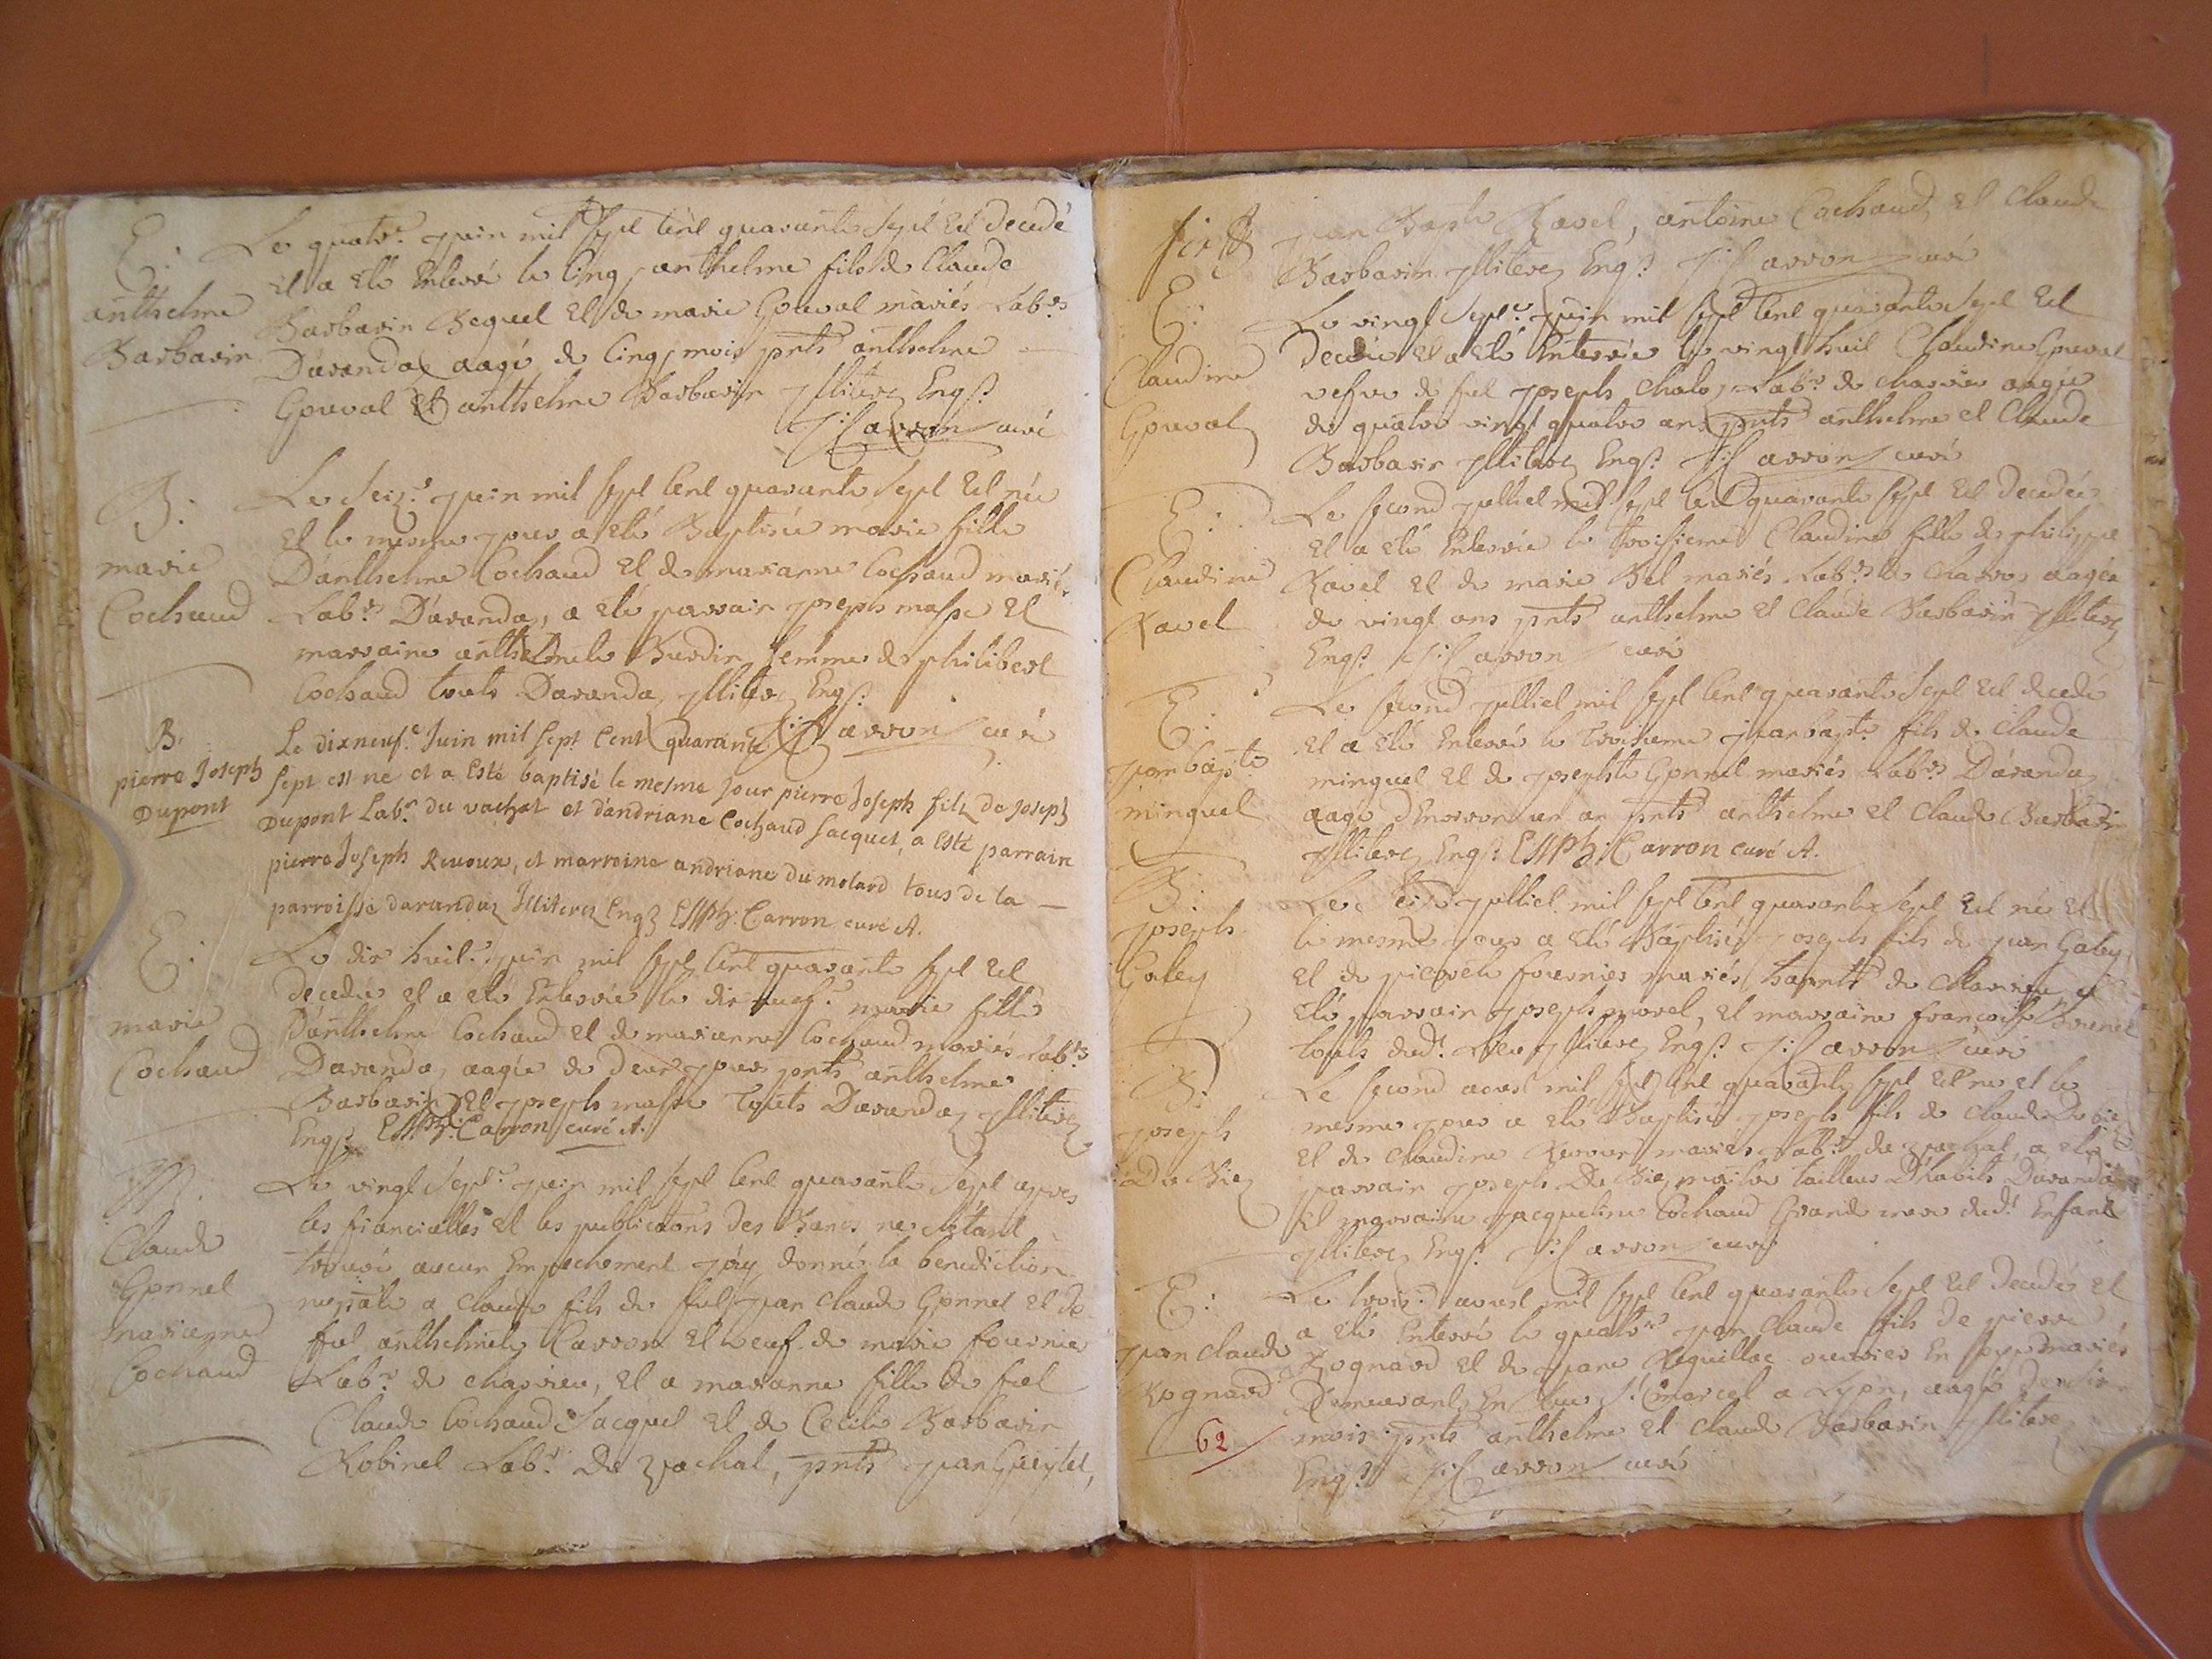 E:
anthelme
Barbarin
Le quatre. juin mil sept cent quarante sept est decedé
et a eté Enterré le cinq anthelme fils de Claude
Barbarin Bequet et de marie Gouval mariés Labrs
Daranda aagé de cinq mois pnts anthelme
Gouval Et anthelme Barbarin Illiterez Enqs
Carron curé
B:
marie
Cochaud
Le Seiz.e juin mil sept cent quarante sept est née
et le mesme jour a eté Baptisée marie fille
D'anthelme Cochaud et de marianne Cochaud mariés
Labrs D'aranda, a eté parrain joseph masse et
marraine anthelmete Burdin femme de philibert
Cochaud touts Daranda Illiterez Enqs
Carron curé
B.
pierre Joseph
Dupont
Le dixneuf.e Juin mil sept Cent quarante
sept est ne et a Esté baptisé le mesme jour pierre Joseph filz de Joseph
Dupont Labr. du vachat et d'andriane Cochaud Jacquet, a Esté parrain
pierre Joseph Reuoux, et marraine andriane du molard tous de la
parroisse darandaz Illiterez Enqs Carron curé A.
E:
marie
Cochaud
Le dix huit.e juin mil sept cent quarante sept est
decedée et a eté Enterrée le dix neuf.e marie fille
D'anthelme Cochaud et de marianne Cochaud mariés Labrs
Daranda, aagée de deux jours pnts anthelme
Barbarin Et joseph masse touts Daranda Illiterez
Enqs Carron curé A.
M.
Claude
Gonnet
marianne
Cochaud
Le vingt sept.e juin mil sept cent quarante sept apres
les fiancialles et les publicaons des Bancs ne s'etant
trouvé aucun Empechement j'ay donné la benediction
nuptiale a Claude fils de feu jean Claude Gonnet et de
feu anthelmete Carron et veuf de marie fournier
Labr. de charvieu, et a marianne fille de feu
Claude Cochaud Jacquet et de Cecile Barbarin
Robinet Labr. De vachat, pnts jean
jean Bapte Ravet, antoine Cochaud, et Claude
Barbarin Illiterez Enqs Carron curé
E:
Claudine
Gouval
Le vingt sept.e juin mil sept cent quarante sept est
decedée et a eté Enterrée le vingt huit Claudine Gouval
vefve de feu joseph Labr. de charvieu aagée
de quatre vingt quatre ans pnts anthelme et Claude
Barbarin Illiterez Enqs Carron curé
E:
Claudine
Ravet
Le second julliet mil sept cent quarante sept est decedée
et a eté Enterrée le troisieme Claudine fille de philippe
Ravet et de marie Bel mariés Labrs de charvieu aagée
de vingt ans pnts anthelme et Claude Barbarin Illiterez
Enqs Carron curé
E:
jean bapte
minguet
Le second julliet mil sept cent quarante sept est decedé
et a eté Enterré le troisieme jean bapte fils de Claude
minguet et de josephte Gonnet mariés Labrs D'aranda
aagé d'Environ un an pnts anthelme et Claude Barbarin
Illiterez Enqs Carron curé A.
B:
joseph
Galey
Le julliet mil sept cent quarante sept est né et
le mesme jour a eté Baptisé joseph fils de jean Galey
et de pierrete fournier mariés habnts de charvieu a
eté parrain joseph et marraine françoise
touts dud.t lieu Illiterez Enqs Carron curé
B:
joseph
De Bie
Le second aoust mil sept cent quarante sept est né et le
mesme jour a eté Baptisé joseph fils de Claude De Bie
et de Claudine mariés Labrs de vachat, a eté
parrain joseph De Bie maitre tailleur D'habits Daranda
et marraine jacqueline Cochaud Grande mere dud.t Enfant
Illiterez Enqs Carron curé
E:
jean claude
Rognard
Le trois.e aoust mil sept cent quarante sept est decedé et
a eté Enterré le quatre jean claude fils de pierre
Rognard et de jeane ouvrier En soye mariés
Demeurants En rue St. marcel a Lyon, aagé de six
mois pnts anthelme et Claude Barbarin Illiterez
Enqs Carron curé
62